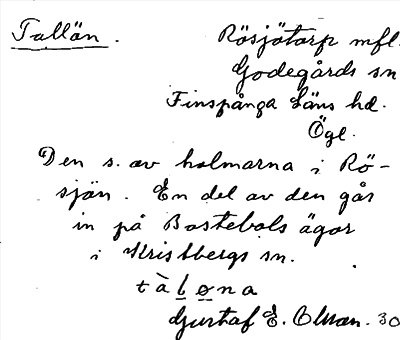 Tallän.
Rösjötorp mfl.
Godegårds sn
Finspånga Läns hd.
Ögl.
Den s. av holmarna i Rö-
sjön. En del av den går
in på Bastebols ägor
i Kristbergs sn.
tàl̲ø̲na
Gustaf E. Olsson. 30